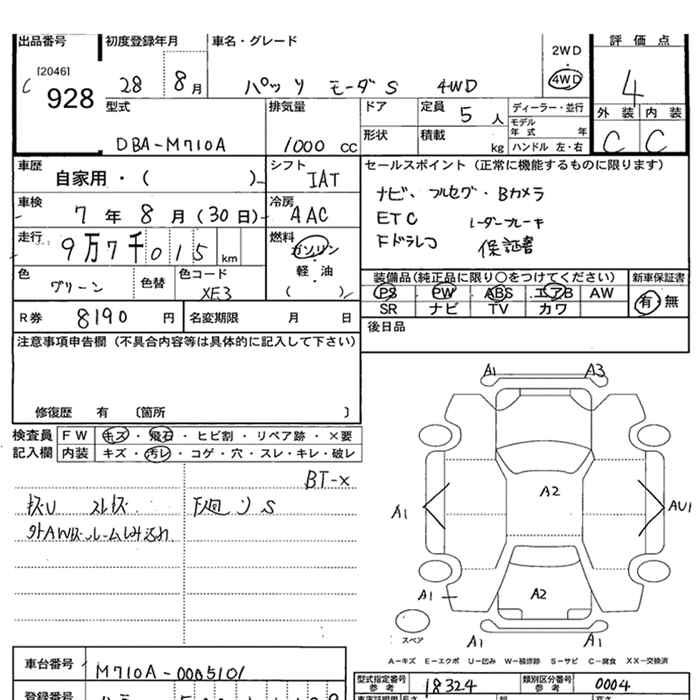 出品番号 初度登録年月 車名・グレード 評価点
[2046] C 928 28 8月 パッソ モーダ S 4WD 2WD 4WD 4
型式 排気量 ドア 定員 5人 ディーラー・並行 外装 内装
モデル年式 年
DBA-M710A 1000 cc 形状 積載 kg ハンドル 左・右 C C
車歴 シフト セールスポイント (正常に機能するものに限ります)
自家用・( ) IAT
ナビ、フルセグ・Bカメラ
車検 7年8月(30日) 冷房 AAC
ETC レーダーブレーキ
走行 9万7千015km 燃料 ガソリン
Fドラレコ 保証書
軽油
色 グリーン 色替 色コード XE3 ( )
装備品(純正品に限り○をつけてください) 新車保証書
PS PW ABS エアB AW 有・無
R券 8190円 名変期限 月 日
SR ナビ TV カワ
後日品
注意事項申告欄(不具合内容等は具体的に記入して下さい)
修復歴 有 〔箇所 〕
検査員 FW キズ・飛石・ヒビ割・リペア跡・×要
記入欄 内装 キズ・汚レ・コゲ・穴・スレ・キレ・破レ
BT-×
キズU スレキズ 下廻り S
A1 A3
A2
A1 AU1
A2
A1 A1
A1 A1
スペア
A-キズ E-エクボ U-凹み W-補修跡 S-サビ C-腐食 XX-交換済
車台番号 M710A-0005101
型式指定番号 参考 18324 類別区分番号 参考 0004
登録番号